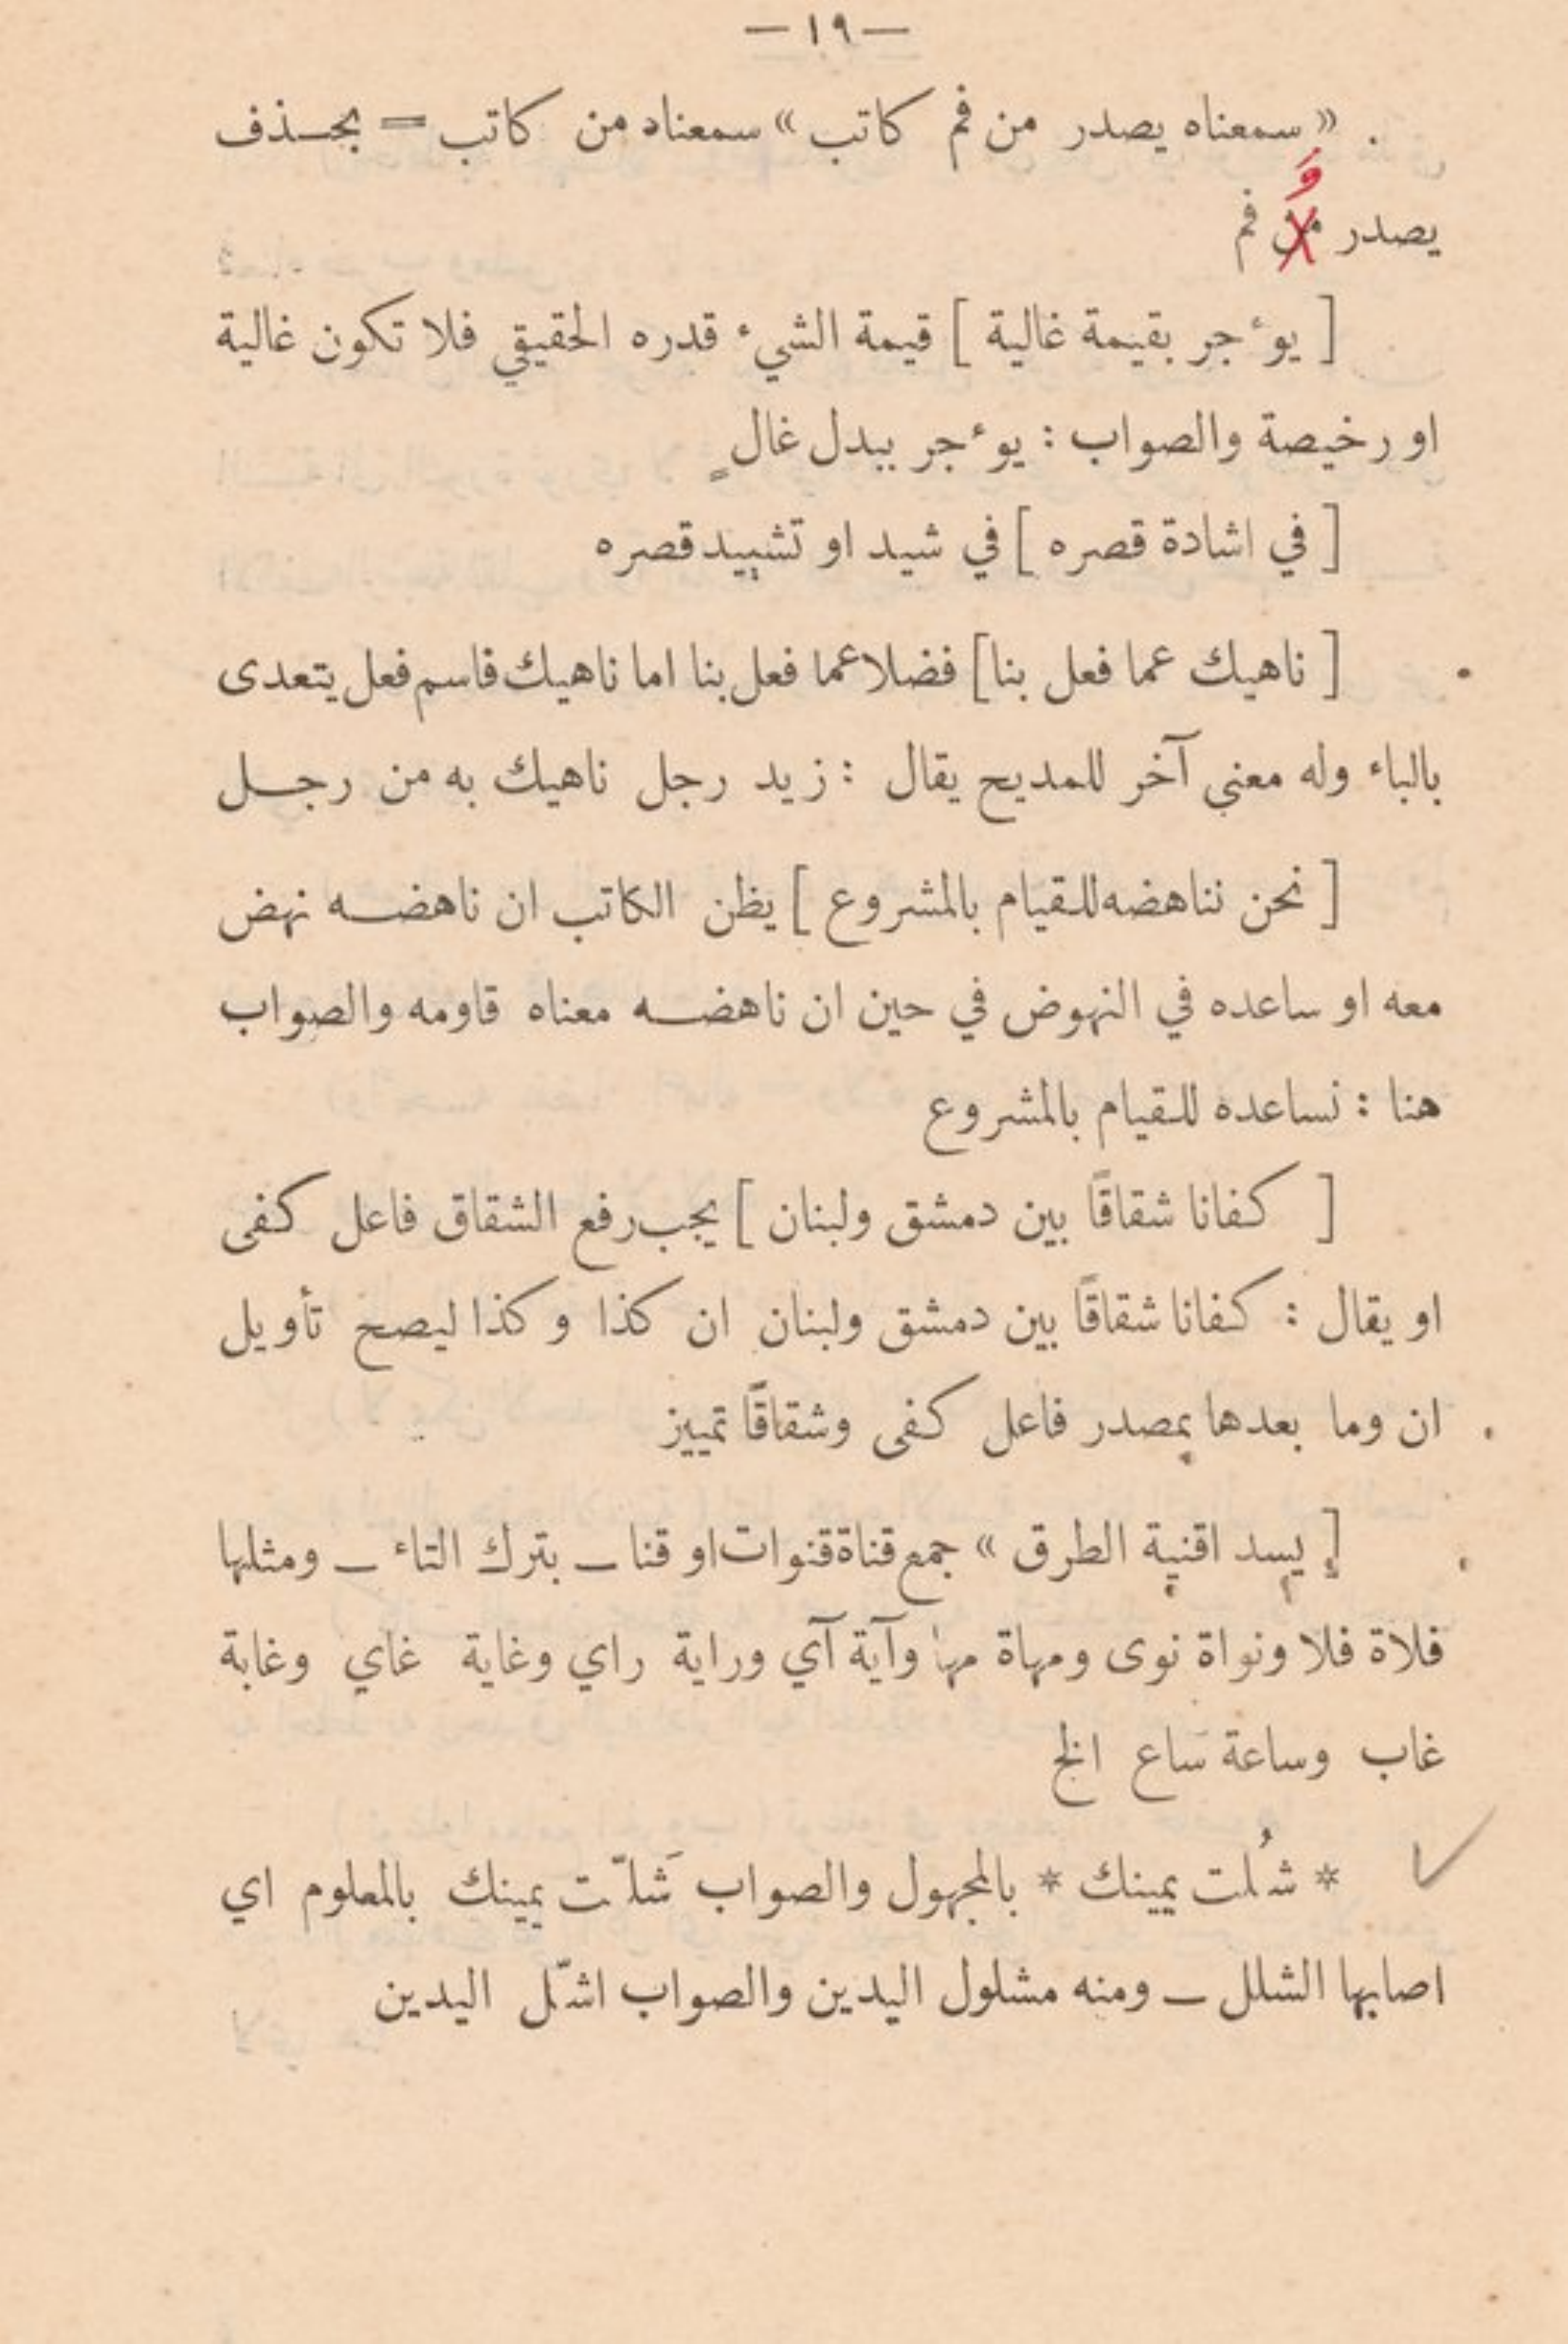 — ١٩ —
« سمعناه يصدر من فم كاتب » سمعناه من كاتب = بحذف
وَ
يصدر من فم
[ يوءجر بقيمة غالية ] قيمة الشيء قدره الحقيقي فلا تكون غالية
او رخيصة والصواب : يوءجر ببدل غالٍ
[ في اشادة قصره ] في شيد او تشييد قصره
[ ناهيك عما فعل بنا ] فضلا عما فعل بنا اما ناهيك فاسم فعل يتعدى
بالباء وله معنى آخر للمديح يقال : زيد رجل ناهيك به من رجل
[ نحن نناهضه للقيام بالمشروع ] يظن الكاتب ان ناهضه نهض
معه او ساعده في النهوض في حين ان ناهضه معناه قاومه والصواب
هنا : نساعده للقيام بالمشروع
[ كفانا شقاقًا بين دمشق ولبنان ] يجب رفع الشقاق فاعل كفى
او يقال : كفانا شقاقًا بين دمشق ولبنان ان كذا وكذا ليصح تأويل
ان وما بعدها بمصدر فاعل كفى وشقاقًا تمييز
[ يسد اقنية الطرق » جمع قناة قنوات او قنا — بترك التاء — ومثلها
فلاة فلا ونواة نوى ومهاة مها وآية آي وراية راي وغاية غاي وغابة
غاب وساعة ساع الخ
* شُلت يمينك * بالمجهول والصواب شَلّت يمينك بالمعلوم اي
اصابها الشلل — ومنه مشلول اليدين والصواب اشّل اليدين